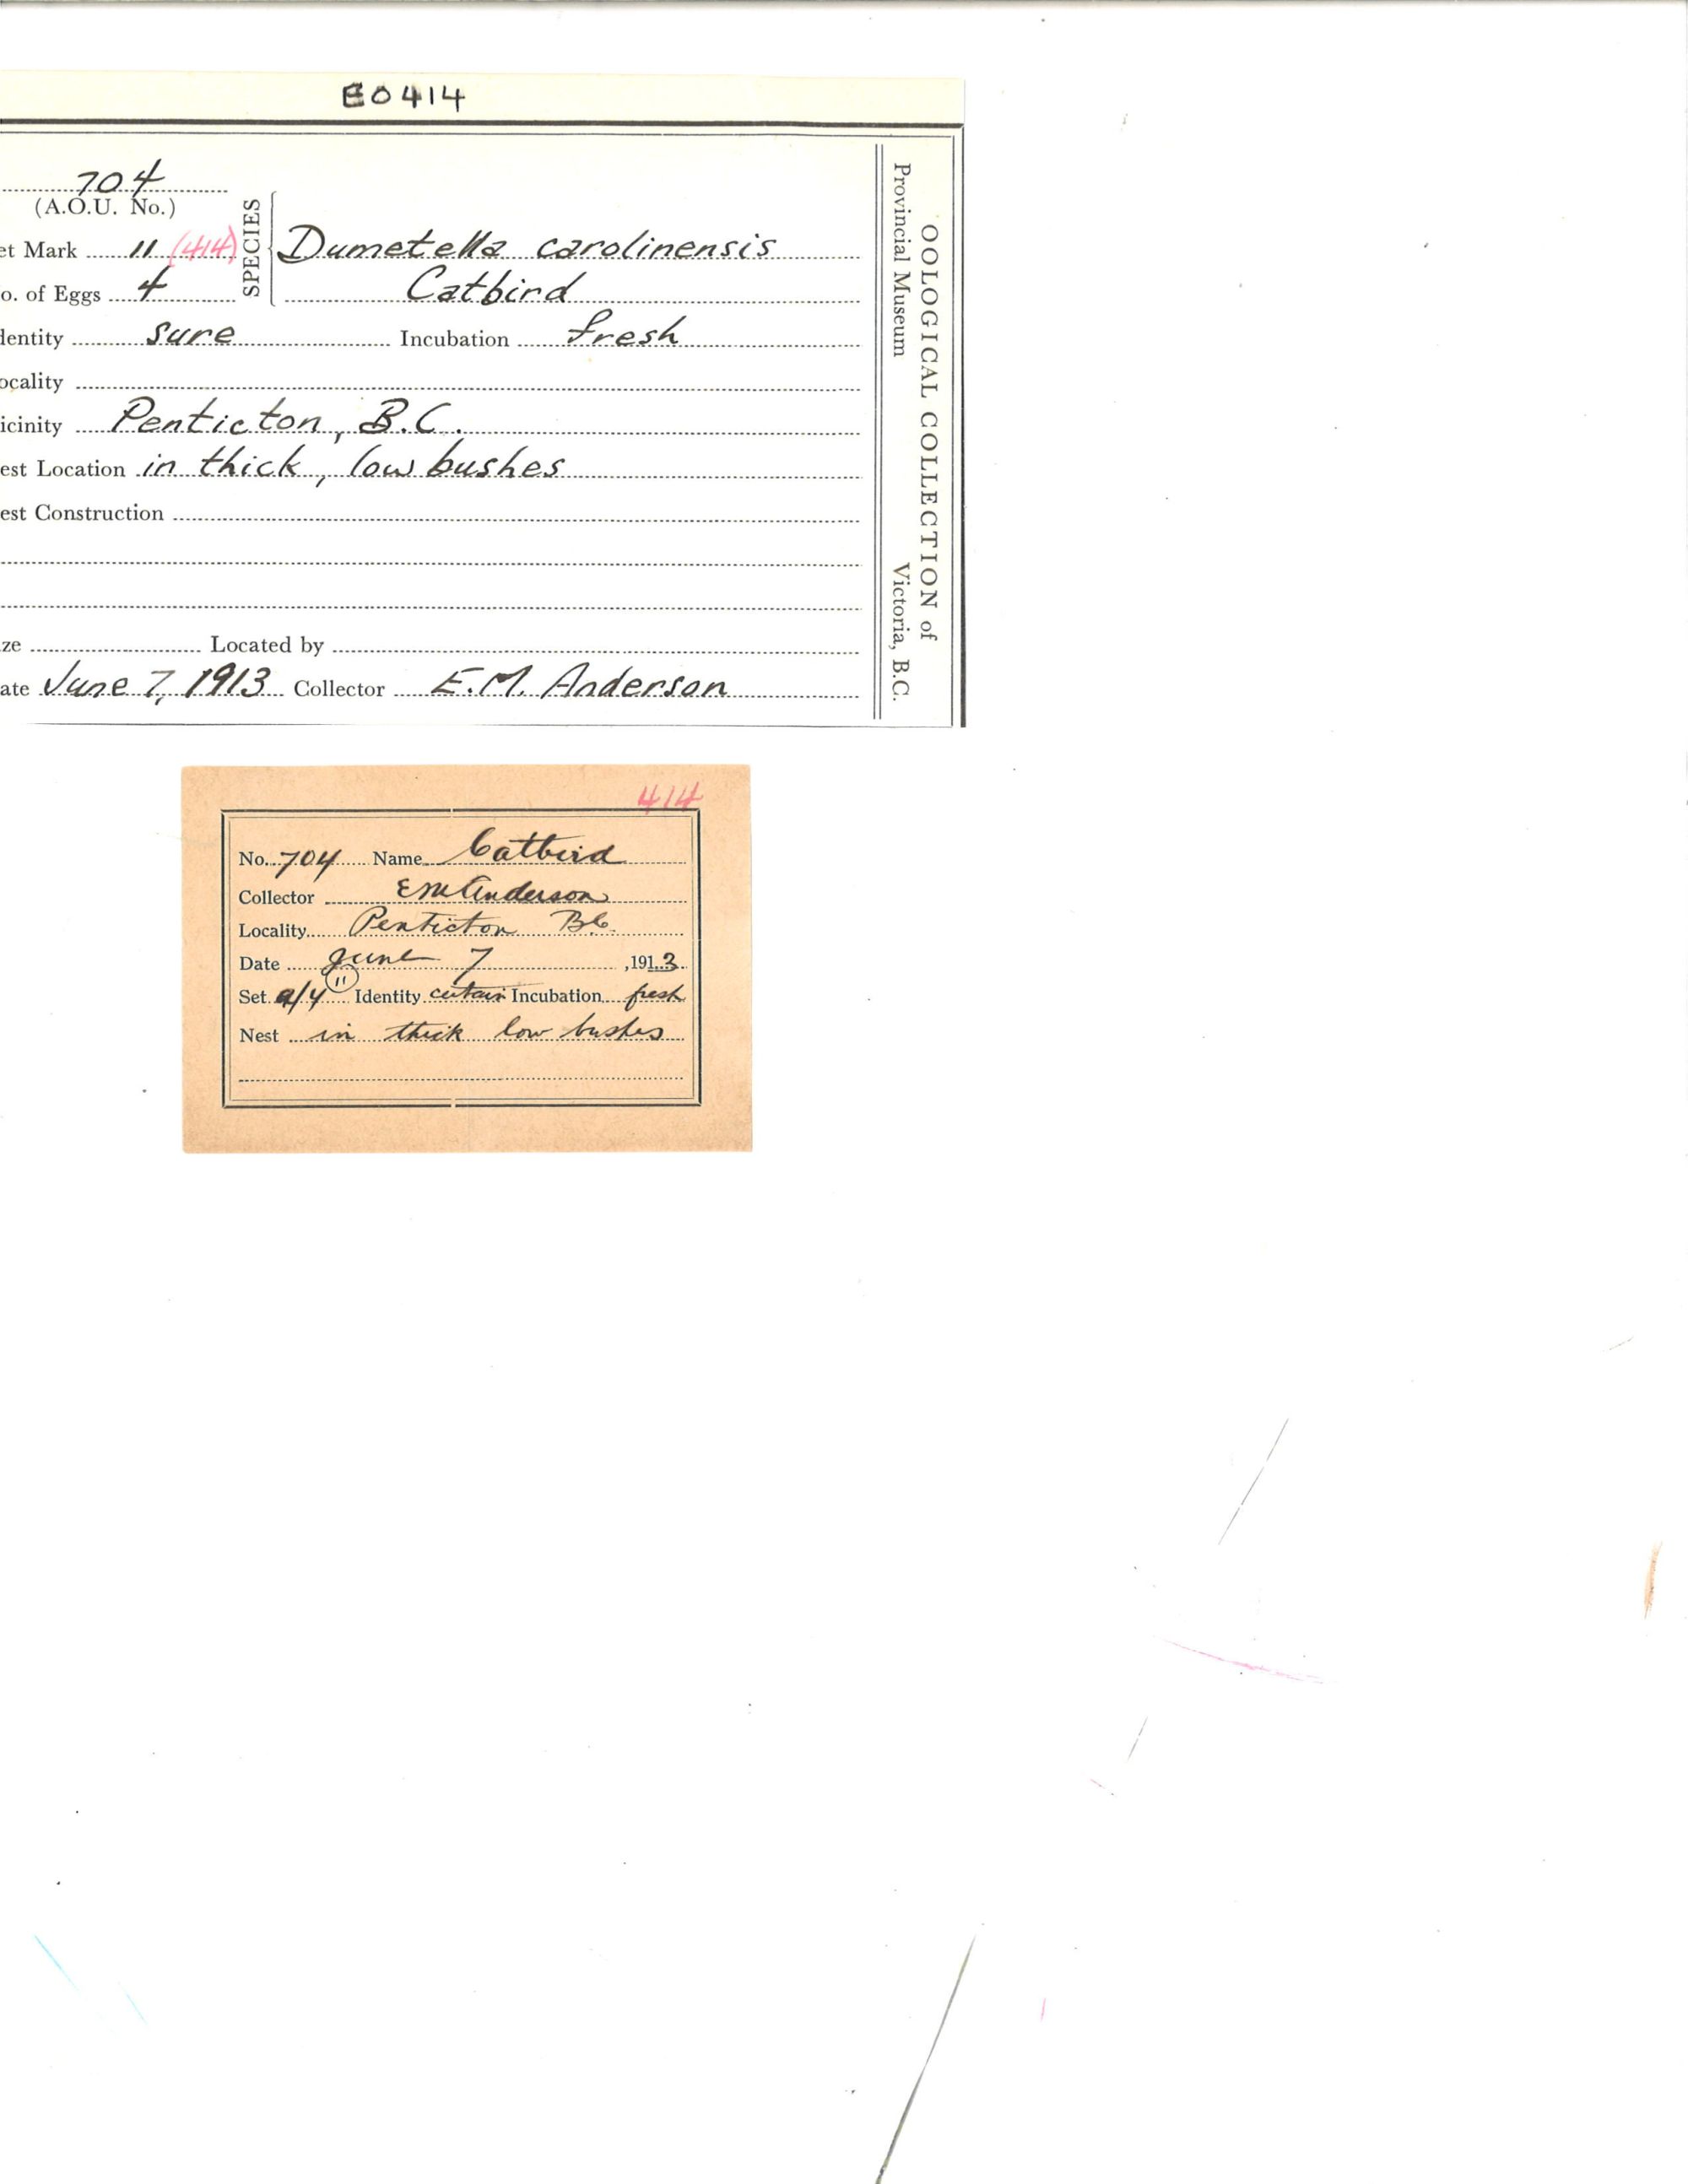 E0414
704
(A.O.U. No.)
et Mark 11 (414)
SPECIES
Dumetella carolinensis
o. of Eggs 4
Catbird
dentity sure Incubation fresh
ocality
icinity Penticton, B.C.
est Location in thick, low bushes
est Construction
ze Located by
ate June 7, 1913 Collector E.M. Anderson
OOLOGICAL COLLECTION of
Provincial Museum Victoria, B.C.
414
No. 704 Name Catbird
Collector EM Anderson
Locality Penticton BC
Date June 7, 1913
Set a/4 11 Identity certain Incubation fresh
Nest in thick low bushes